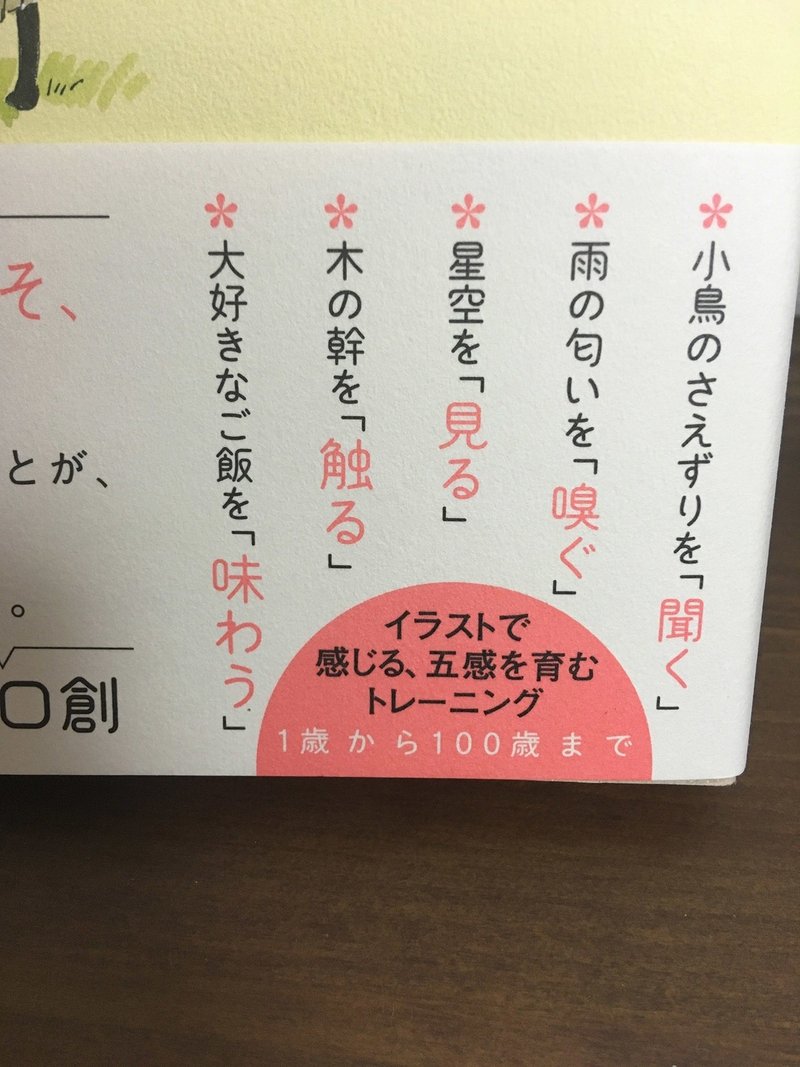 ＊小鳥のさえずりを「聞く」
＊雨の匂いを「嗅ぐ」
＊星空を「見る」
＊木の幹を「触る」
＊大好きなご飯を「味わう」
イラストで
感じる、五感を育む
トレーニング
1歳から100歳まで
そ、
とが、
。
創